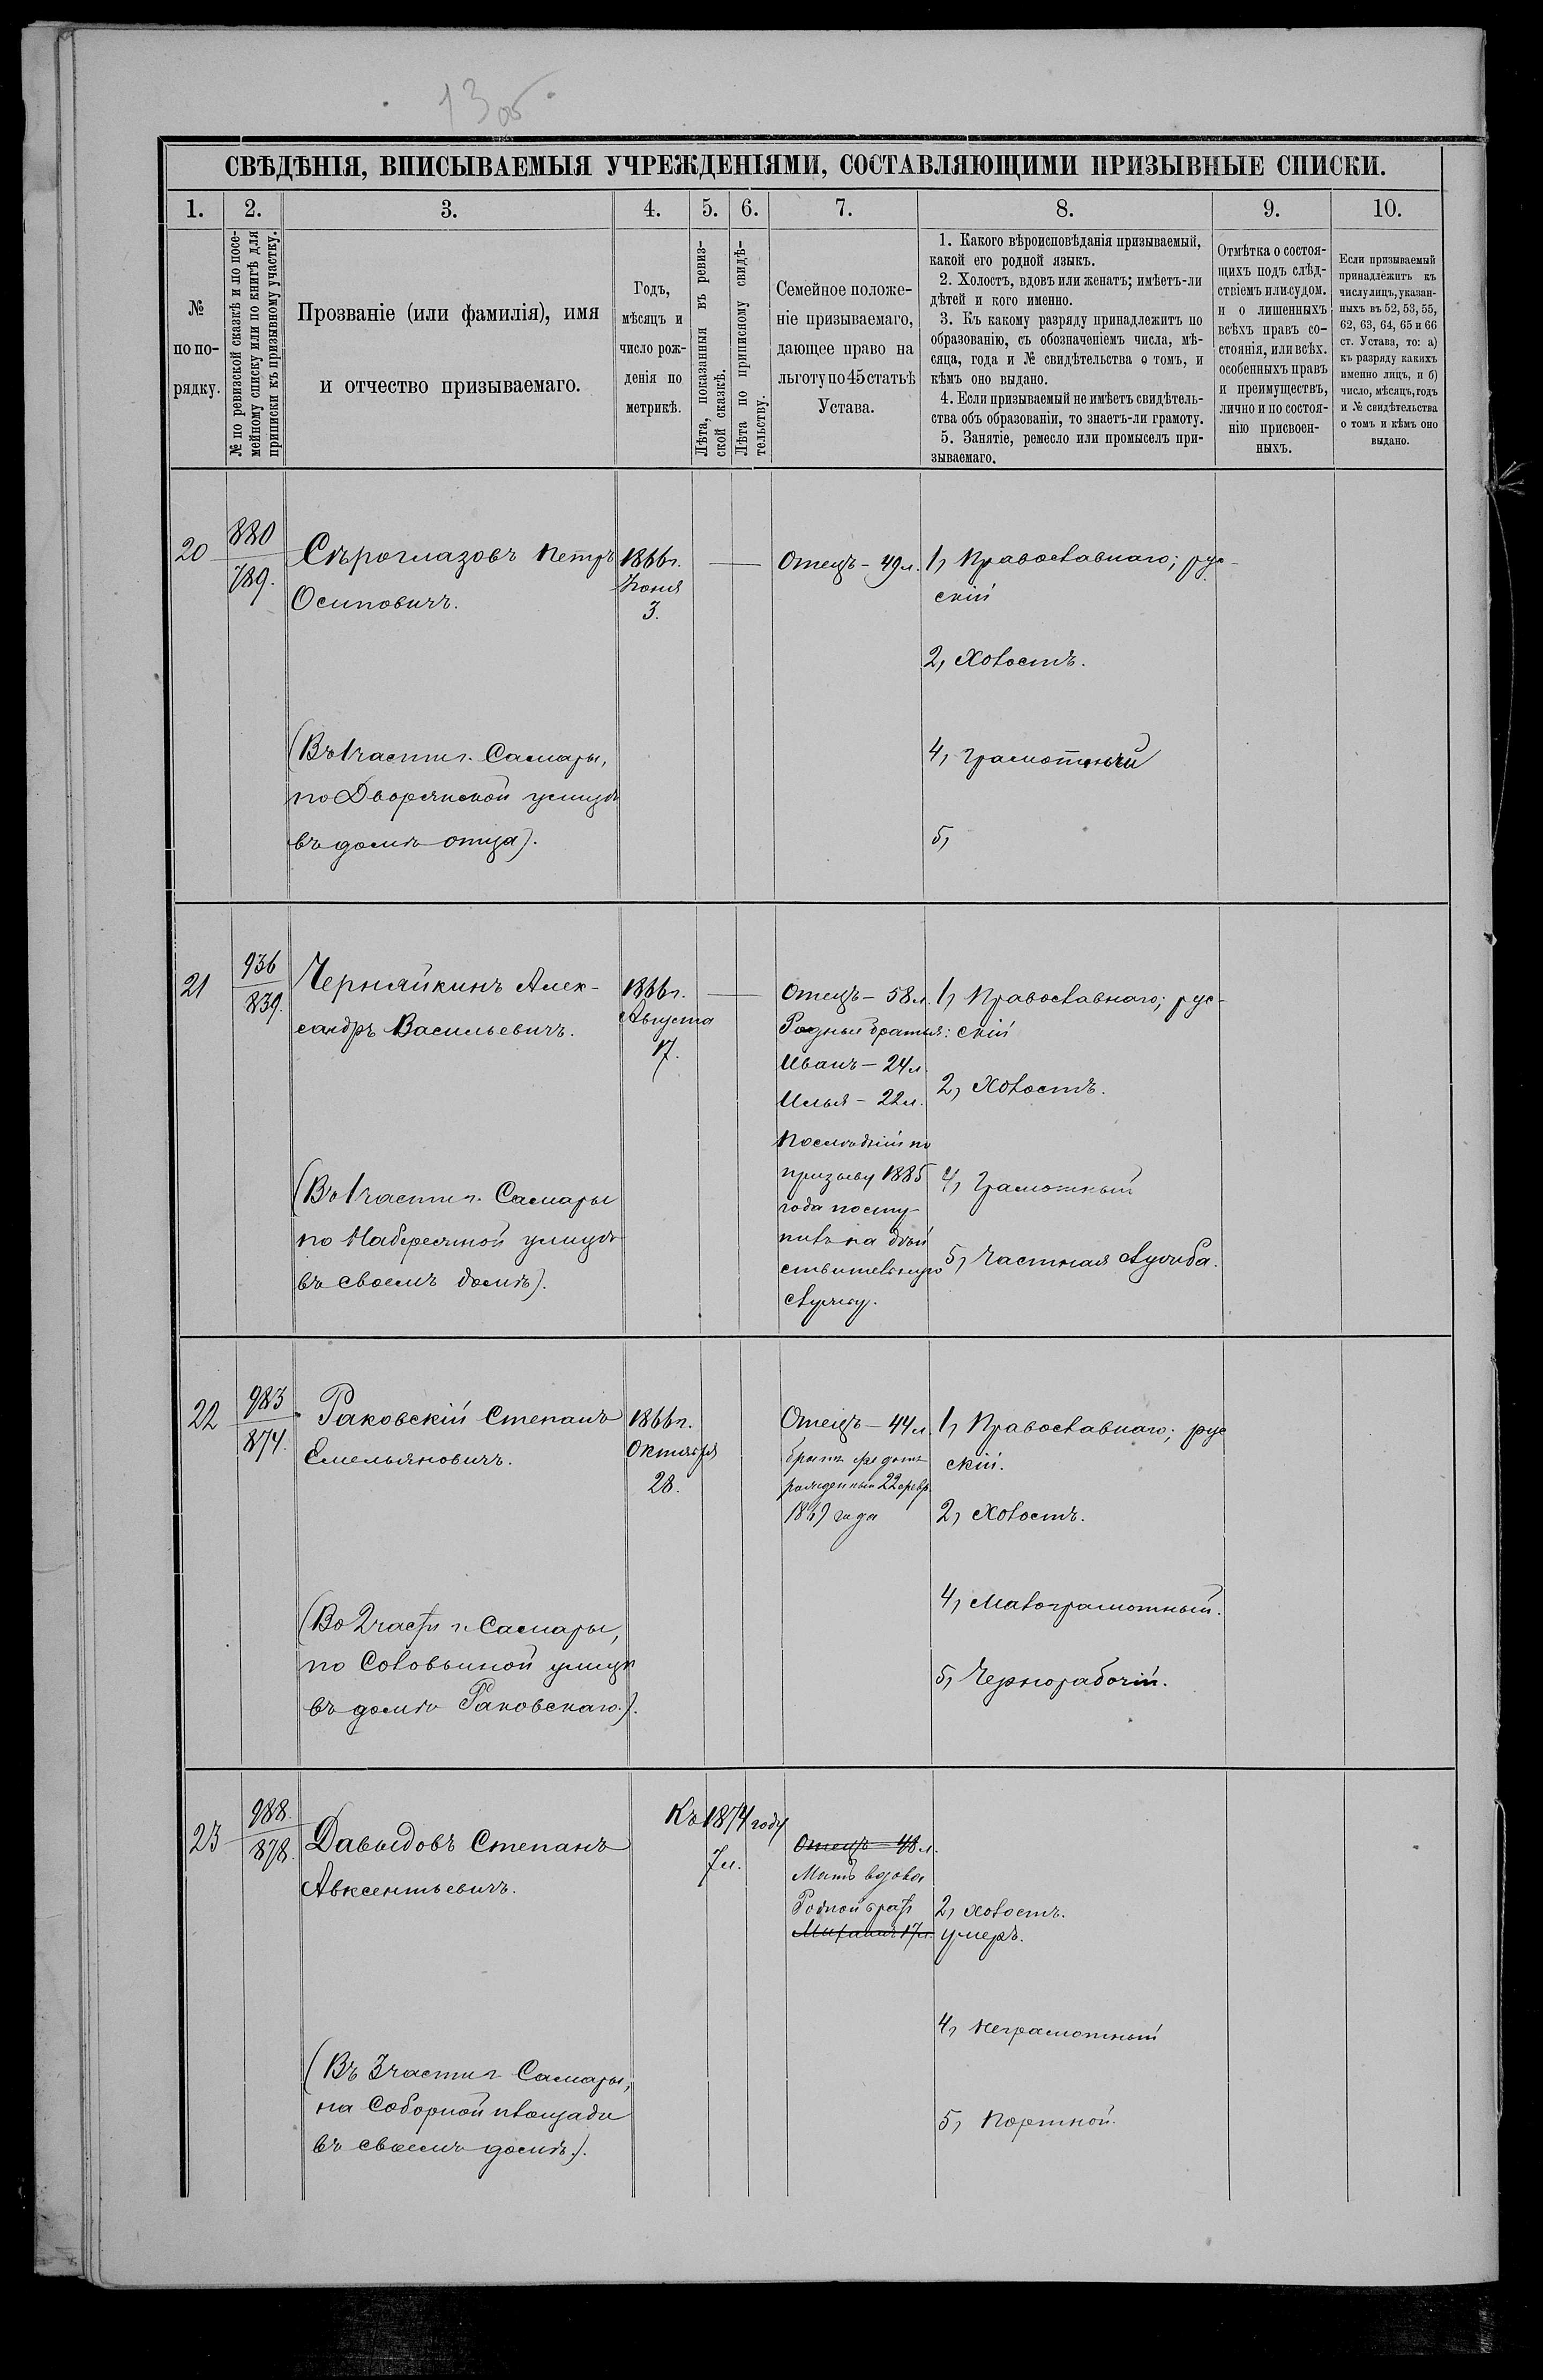 13 об
СВѢДѢНІЯ, ВПИСЫВАЕМЫЯ УЧРЕЖДЕНІЯМИ, СОСТАВЛЯЮЩИМИ ПРИЗЫВНЫЕ СПИСКИ.
1. 2. 3. 4. 5. 6. 7. 8. 9. 10.
№
по по-
рядку.
№ по ревизской сказкѣ и по посе-
мейному списку или по книгѣ для
приписки къ призывному участку.
Прозваніе (или фамилія), имя
и отчество призываемаго.
Годъ,
мѣсяцъ и
число рож-
денія по
метрикѣ.
Лѣта, показанныя въ ревиз-
ской сказкѣ.
Лѣта по приписному свидѣ-
тельству.
Семейное положе-
ніе призываемаго,
дающее право на
льготу по 45 статьѣ
Устава.
1. Какого вѣроисповѣданія призываемый,
какой его родной языкъ.
2. Холостъ, вдовъ или женатъ; имѣетъ-ли
дѣтей и кого именно.
3. Къ какому разряду принадлежитъ по
образованію, съ обозначеніемъ числа, мѣ-
сяца, года и № свидѣтельства о томъ, и
кѣмъ оно выдано.
4. Если призываемый не имѣетъ свидѣтель-
ства объ образованіи, то знаетъ-ли грамоту.
5. Занятіе, ремесло или промыселъ при-
зываемаго.
Отмѣтка о состоя-
щихъ подъ слѣд-
ствіемъ или судом.
и о лишенныхъ
всѣхъ правъ со-
стоянія, или всѣх.
особенныхъ правъ
и преимуществъ,
лично и по состоя-
нію присвоен-
ныхъ.
Если призываемый
принадлежитъ къ
числу лицъ, указан-
ныхъ въ 52, 53, 55,
62, 63, 64, 65 и 66
ст. Устава, то: а)
къ разряду какихъ
именно лицъ, и б)
число, мѣсяцъ, годъ
и № свидѣтельства
о томъ и кѣмъ оно
выдано.
20
880
789.
Сѣроглазовъ Петръ
Осиповичъ.
(Въ 1 части г. Самары,
по Дворянской улицѣ
въ домѣ отца).
1866 г.
Іюня
3.
Отецъ - 49 л.
1, Православнаго; рус-
скій
2, Холостъ.
4, Грамотный
5,
21
936
839.
Черняйкинъ Алек-
сандръ Васильевичъ.
(Въ 1 части г. Самары
по Набережной улицѣ
въ своемъ домѣ).
1866 г.
Августа
17.
Отецъ - 58 л.
Родные братья:
Иванъ - 24 л.
Илья - 22 л.
Послѣдній по
призыву 1885
года посту-
пилъ на дѣй
ствительную
службу.
1, Православнаго; рус-
скій
2, Холостъ.
4, Грамотный
5, Частная служба.
22
983
874.
Раковскій Степанъ
Емельяновичъ.
(Во 2 части г. Самары,
по Соловьиной улицѣ
въ домѣ Раковскаго.).
1866 г.
Октября
28.
Отецъ - 44 л.
братъ Федотъ
рожденный 22 февр.
1869 года
1, Православнаго; рус
скій.
2, Холостъ.
4, Малограмотный.
5, Чернорабочій.
23
988.
878.
Давыдовъ Степанъ
Авксентьевичъ.
(Въ 3 части г. Самары,
на Соборной площади
въ своемъ домѣ.).
Къ 1874 году
7 л.
Отецъ - 48 л.
Мать вдова
Родной братъ
Михаилъ 17 л.
2, холостъ.
умеръ.
4, неграмотный
5, Портной.